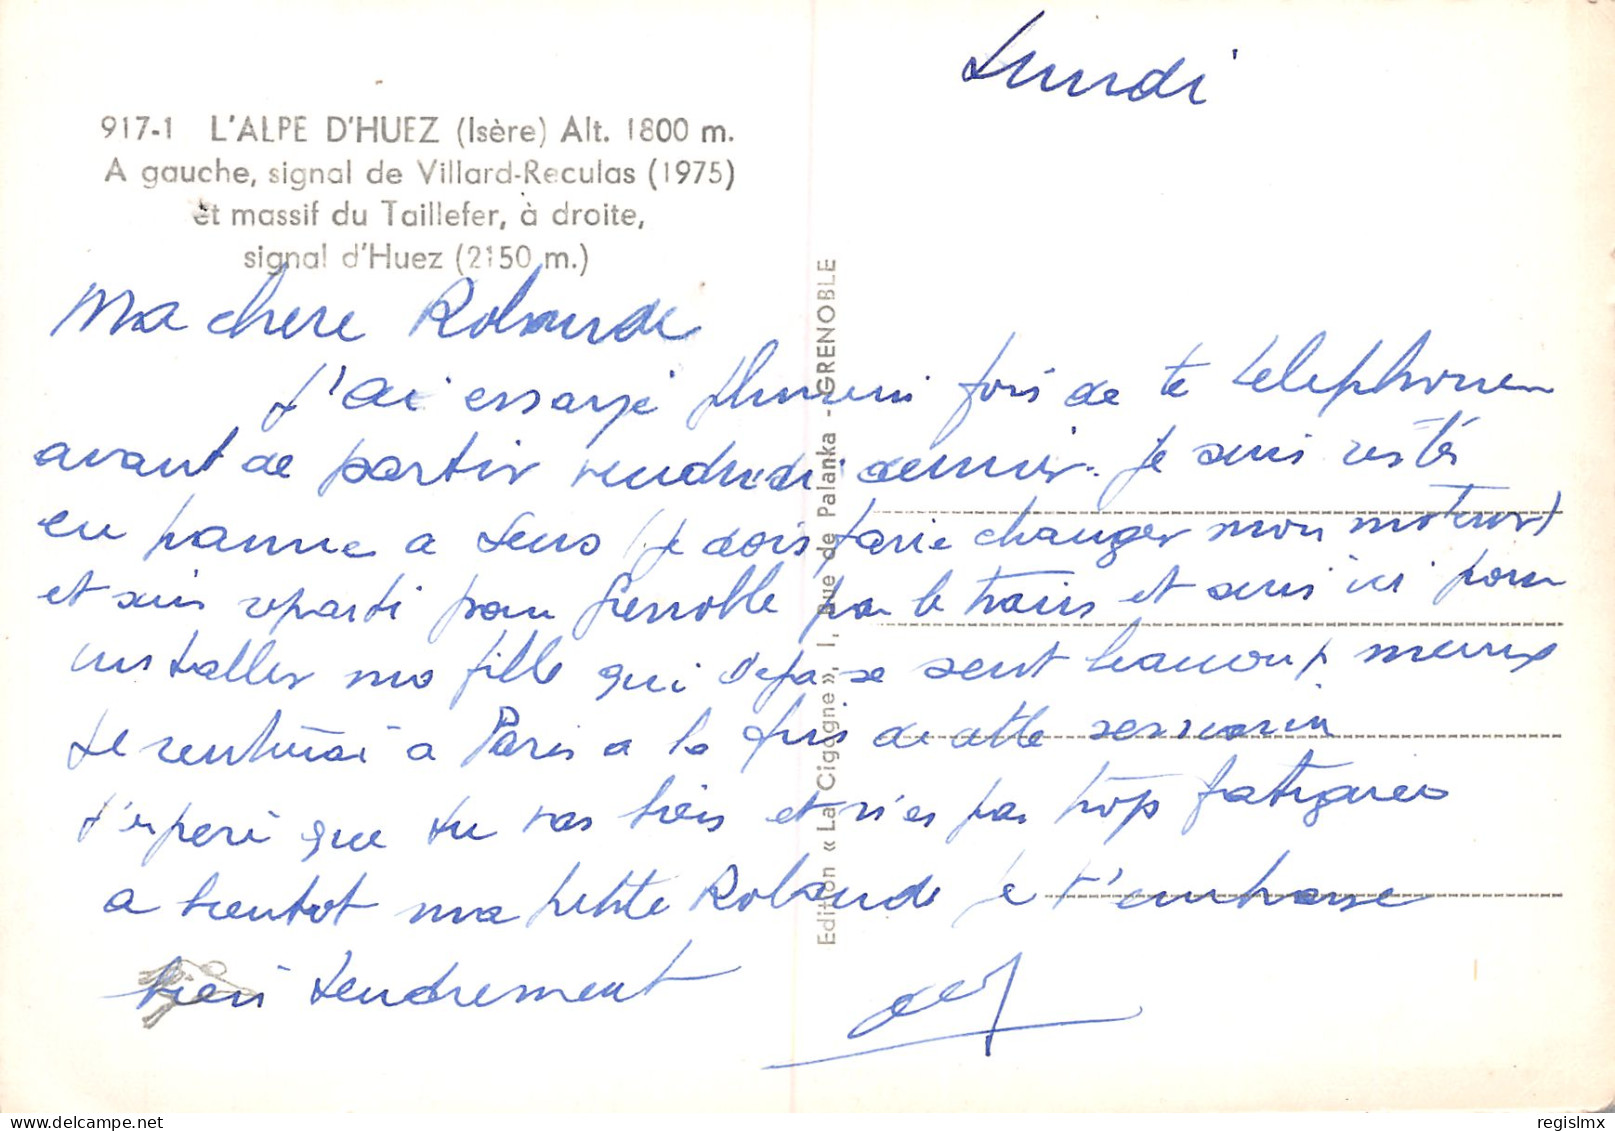 Lundi
917-1 L'ALPE D'HUEZ (Isère) Alt. 1800 m.
A gauche, signal de Villard-Reculas (1975)
et massif du Taillefer, à droite,
signal d'Huez (2150 m.)
Ma chere Rolande
J'ai essayé plusieurs fois de te telephoner
avant de partir vendredi dernier. Je suis restés
en panne a Sens (je dois faire changer mon moteur)
et suis reparti pour Grenoble par le train et suis ici pour
installer ma fille qui se sent beaucoup mieux
Je rentrerai a Paris a la fin de cette semaine
J'espere que tu vas bien et n'es pas trop fatiguée
a bientot ma petite Rolande je t'embrasse
bien tendrement
Edition « La Cigogne », 1, Rue de Palanka - GRENOBLE
regislmx